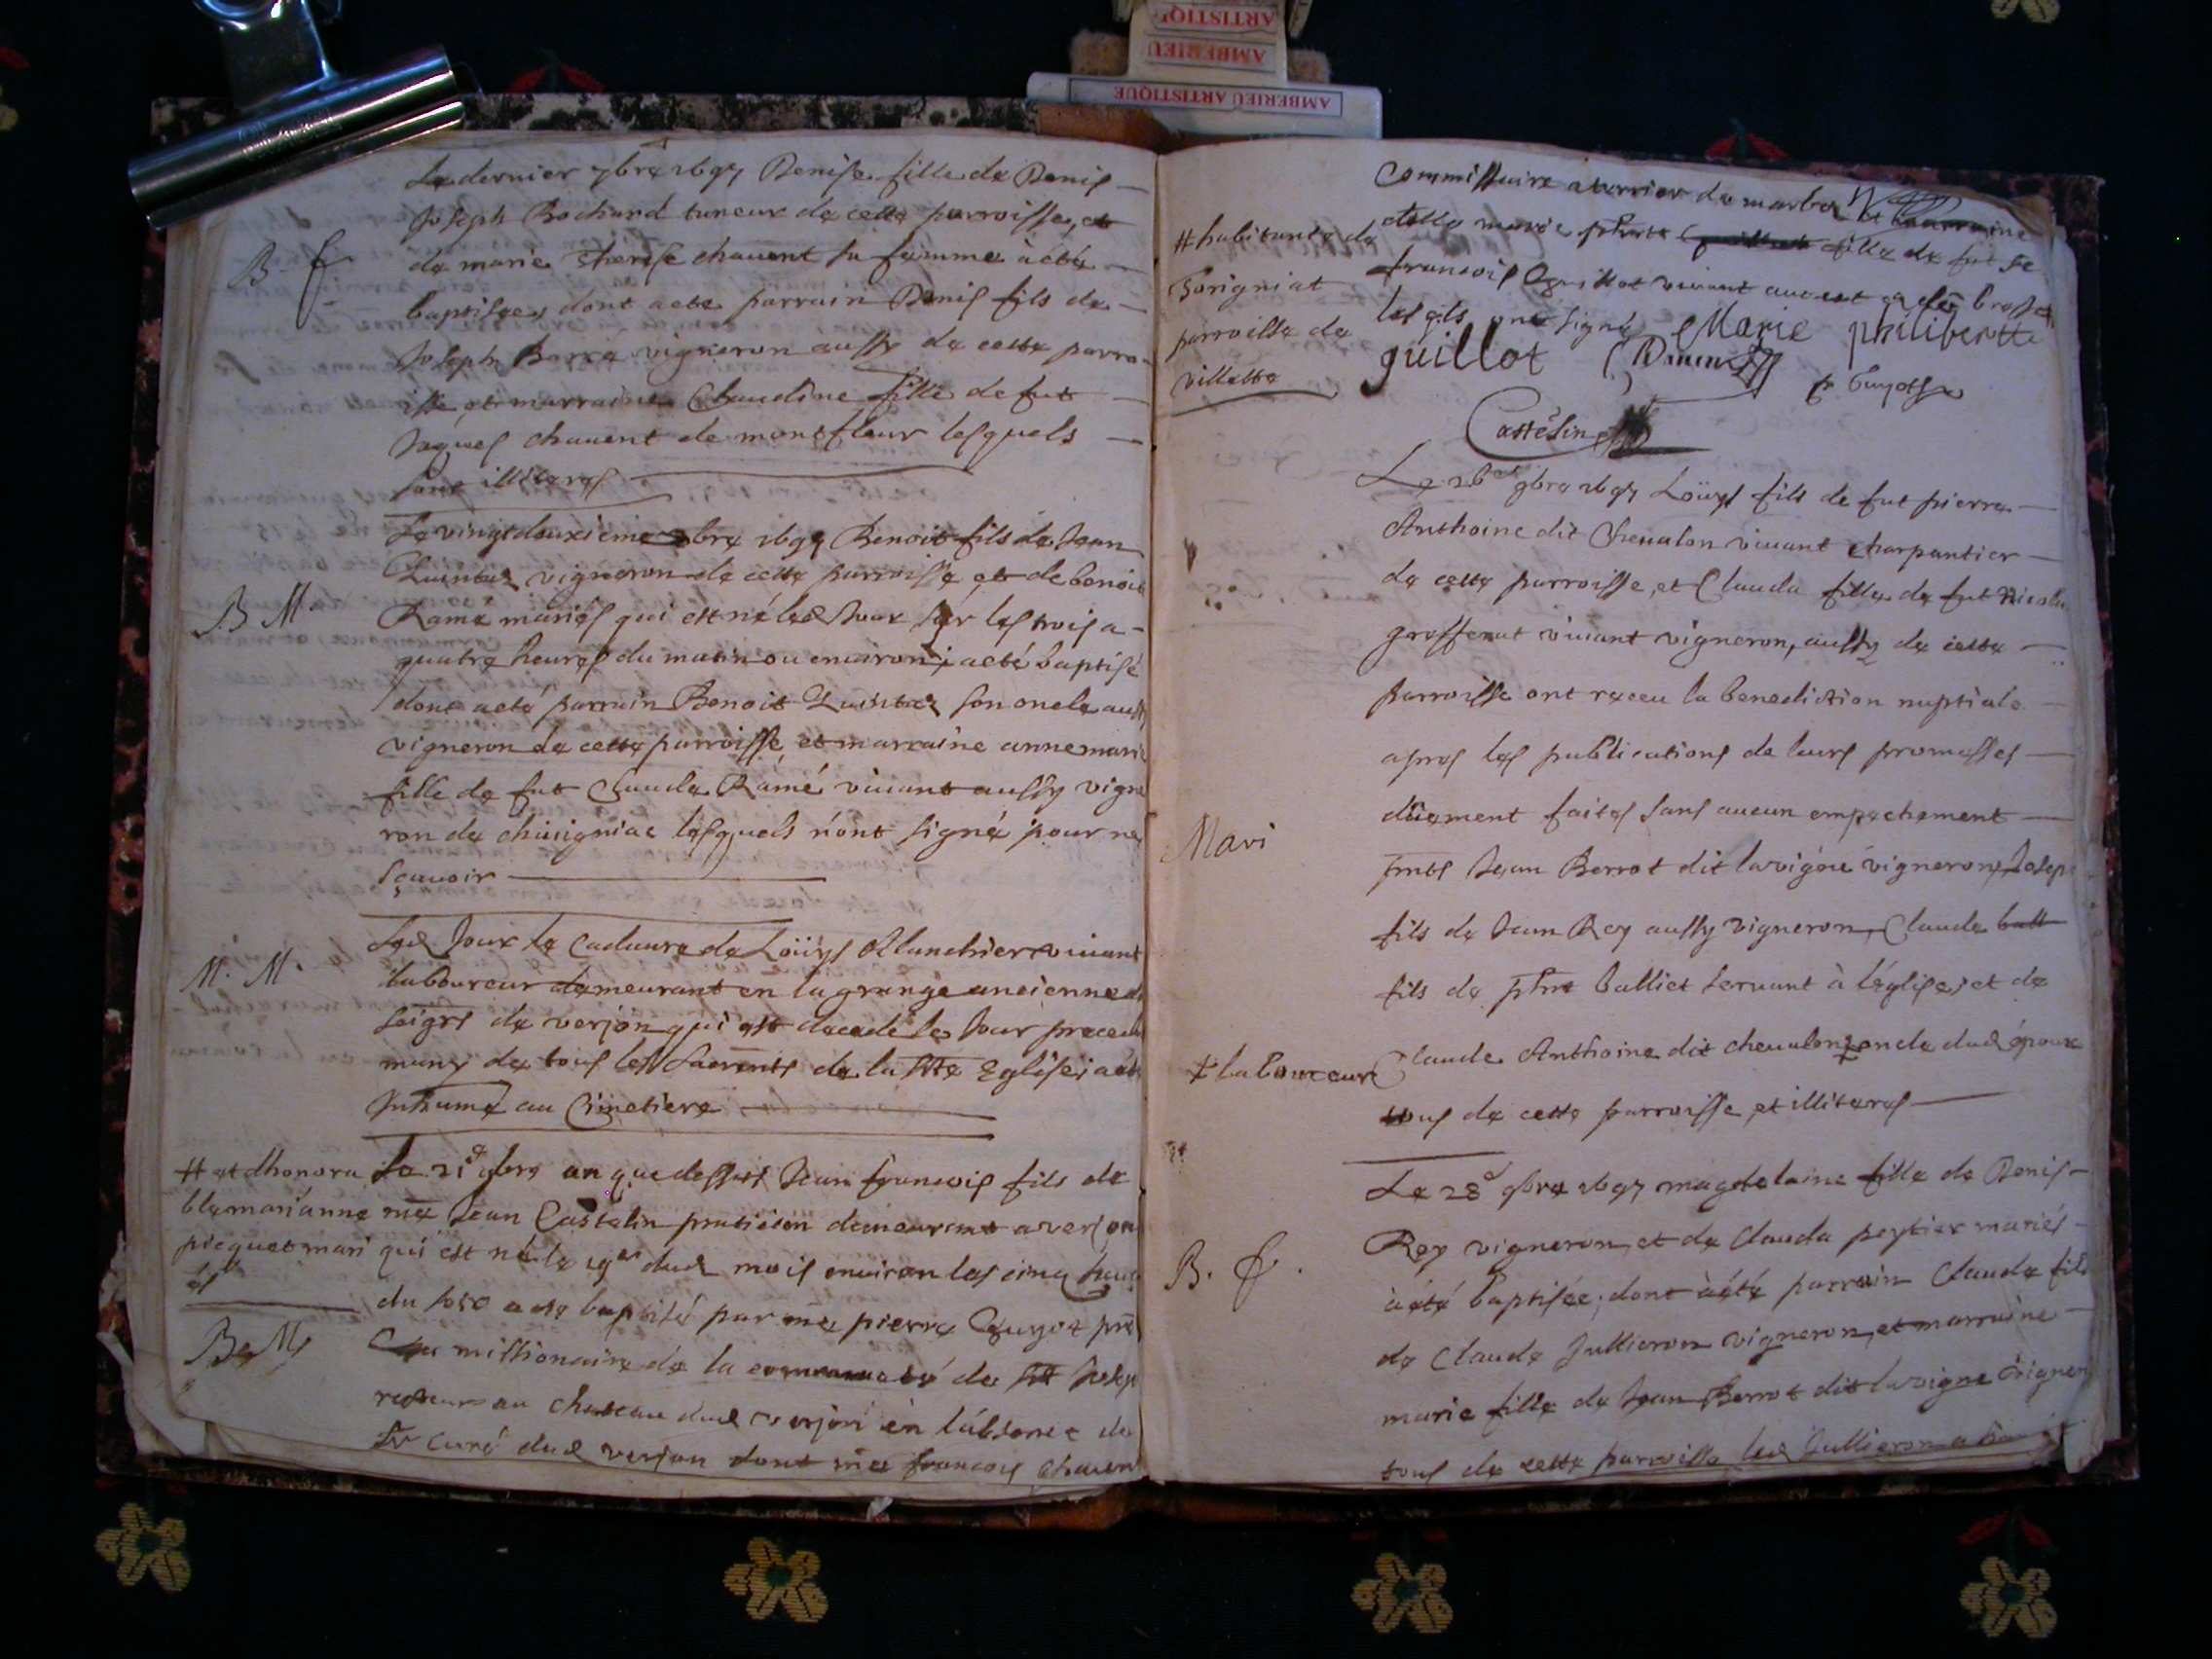 ARTISTIQ
AMBERIEU
AMBERIEU ARTISTIQUE
Le dernier 7bre 1697 Denise fille de Denis
Joseph Bochard tuneur de cette parroisse, et
B. f.
de marie Therese chauent sa famme a eté
baptisée, dont a eté parrain Denis fils de
Joseph Borra vigneron aussy de cette parro-
isse et marraine Claudine fille de fut
Jaques chauent de montfleur lesquels
sont illiterés
Le vingtdeuxieme 8bre 1697 Benoit fils de Jean
Quintaz vigneron de cette parroisse, et de benoite
B M.
Ramé mariés qui est né led Jour sur les trois a-
quatre heures du matin ou environ, a eté baptisé
dont a eté parrain Benoit Quintaz son oncle aussy
vigneron de cette parroisse, et marraine anne marie
fille de fut Claude Ramé vivant aussy vigne
ron de chivigniac lesquels n'ont signé pour ne
sçavoir
M. M.
Led. Jour le Cadavre de Loüys Blanchier vivant
laboureur demeurant en la grange ancienne
seigrs de verjon qui est decedé le Jour preced
muny de tous les Sacrents de la Ste Eglise, a eté
Inhumé au Cimetiere
# et dhonora
ble marianne
picquet mari
és
Le 21e 9bre an que dessus Jean francois fils de
me Jean Castelin praticien demeurant a verjon
qui est né le 19e dud mois environ les cinq heures
du soir a eté baptisé par me pierre Guyot pre
B. M
missionaire de la communauté de St Joseph
au chateau dud verjon en l'absence de
Sr curé dud verjon dont me francois chauent
commissaire a terrier de marboz et marraine
# habitante de
dello marie phrte fille de fut Sr
Torigniat
francois Guillot vivant
parroisse de
lesqls ont signé
villette
Marie philiberte
guillot
p. Guyot
Castelin
Le 26e 9bre 1697 Loüys fils de fut pierre
Anthoine dit Chevalon vivant charpantier
de cette parroisse, et Clauda fille de fut Nicolas
grosserat vivant vigneron, aussy de cette
parroisse ont receu la benediction nuptiale
apres les publications de leurs promesses
Mari
düement faites sans aucun empechement
pnts Jean Berrot dit lavigne vigneron, Joseph
fils de Jean Rey aussy vigneron, Claude
fils de phrt balliet servant à léglise, et de
# laboureur
Claude Anthoine dit chevalon oncle dud époux
tous de cette parroisse, et illiterés
Le 28e 9bre 1697 magdelaine fille de Denis
Rey vigneron, et de Clauda peytier mariés
B. f.
à été baptisée, dont à été parrain Claude fils
de Claude Jullieron vigneron, et marraine
marie fille de Jean Berrot dit lavigne vigneron
tous de cette parroisse led Jullieron